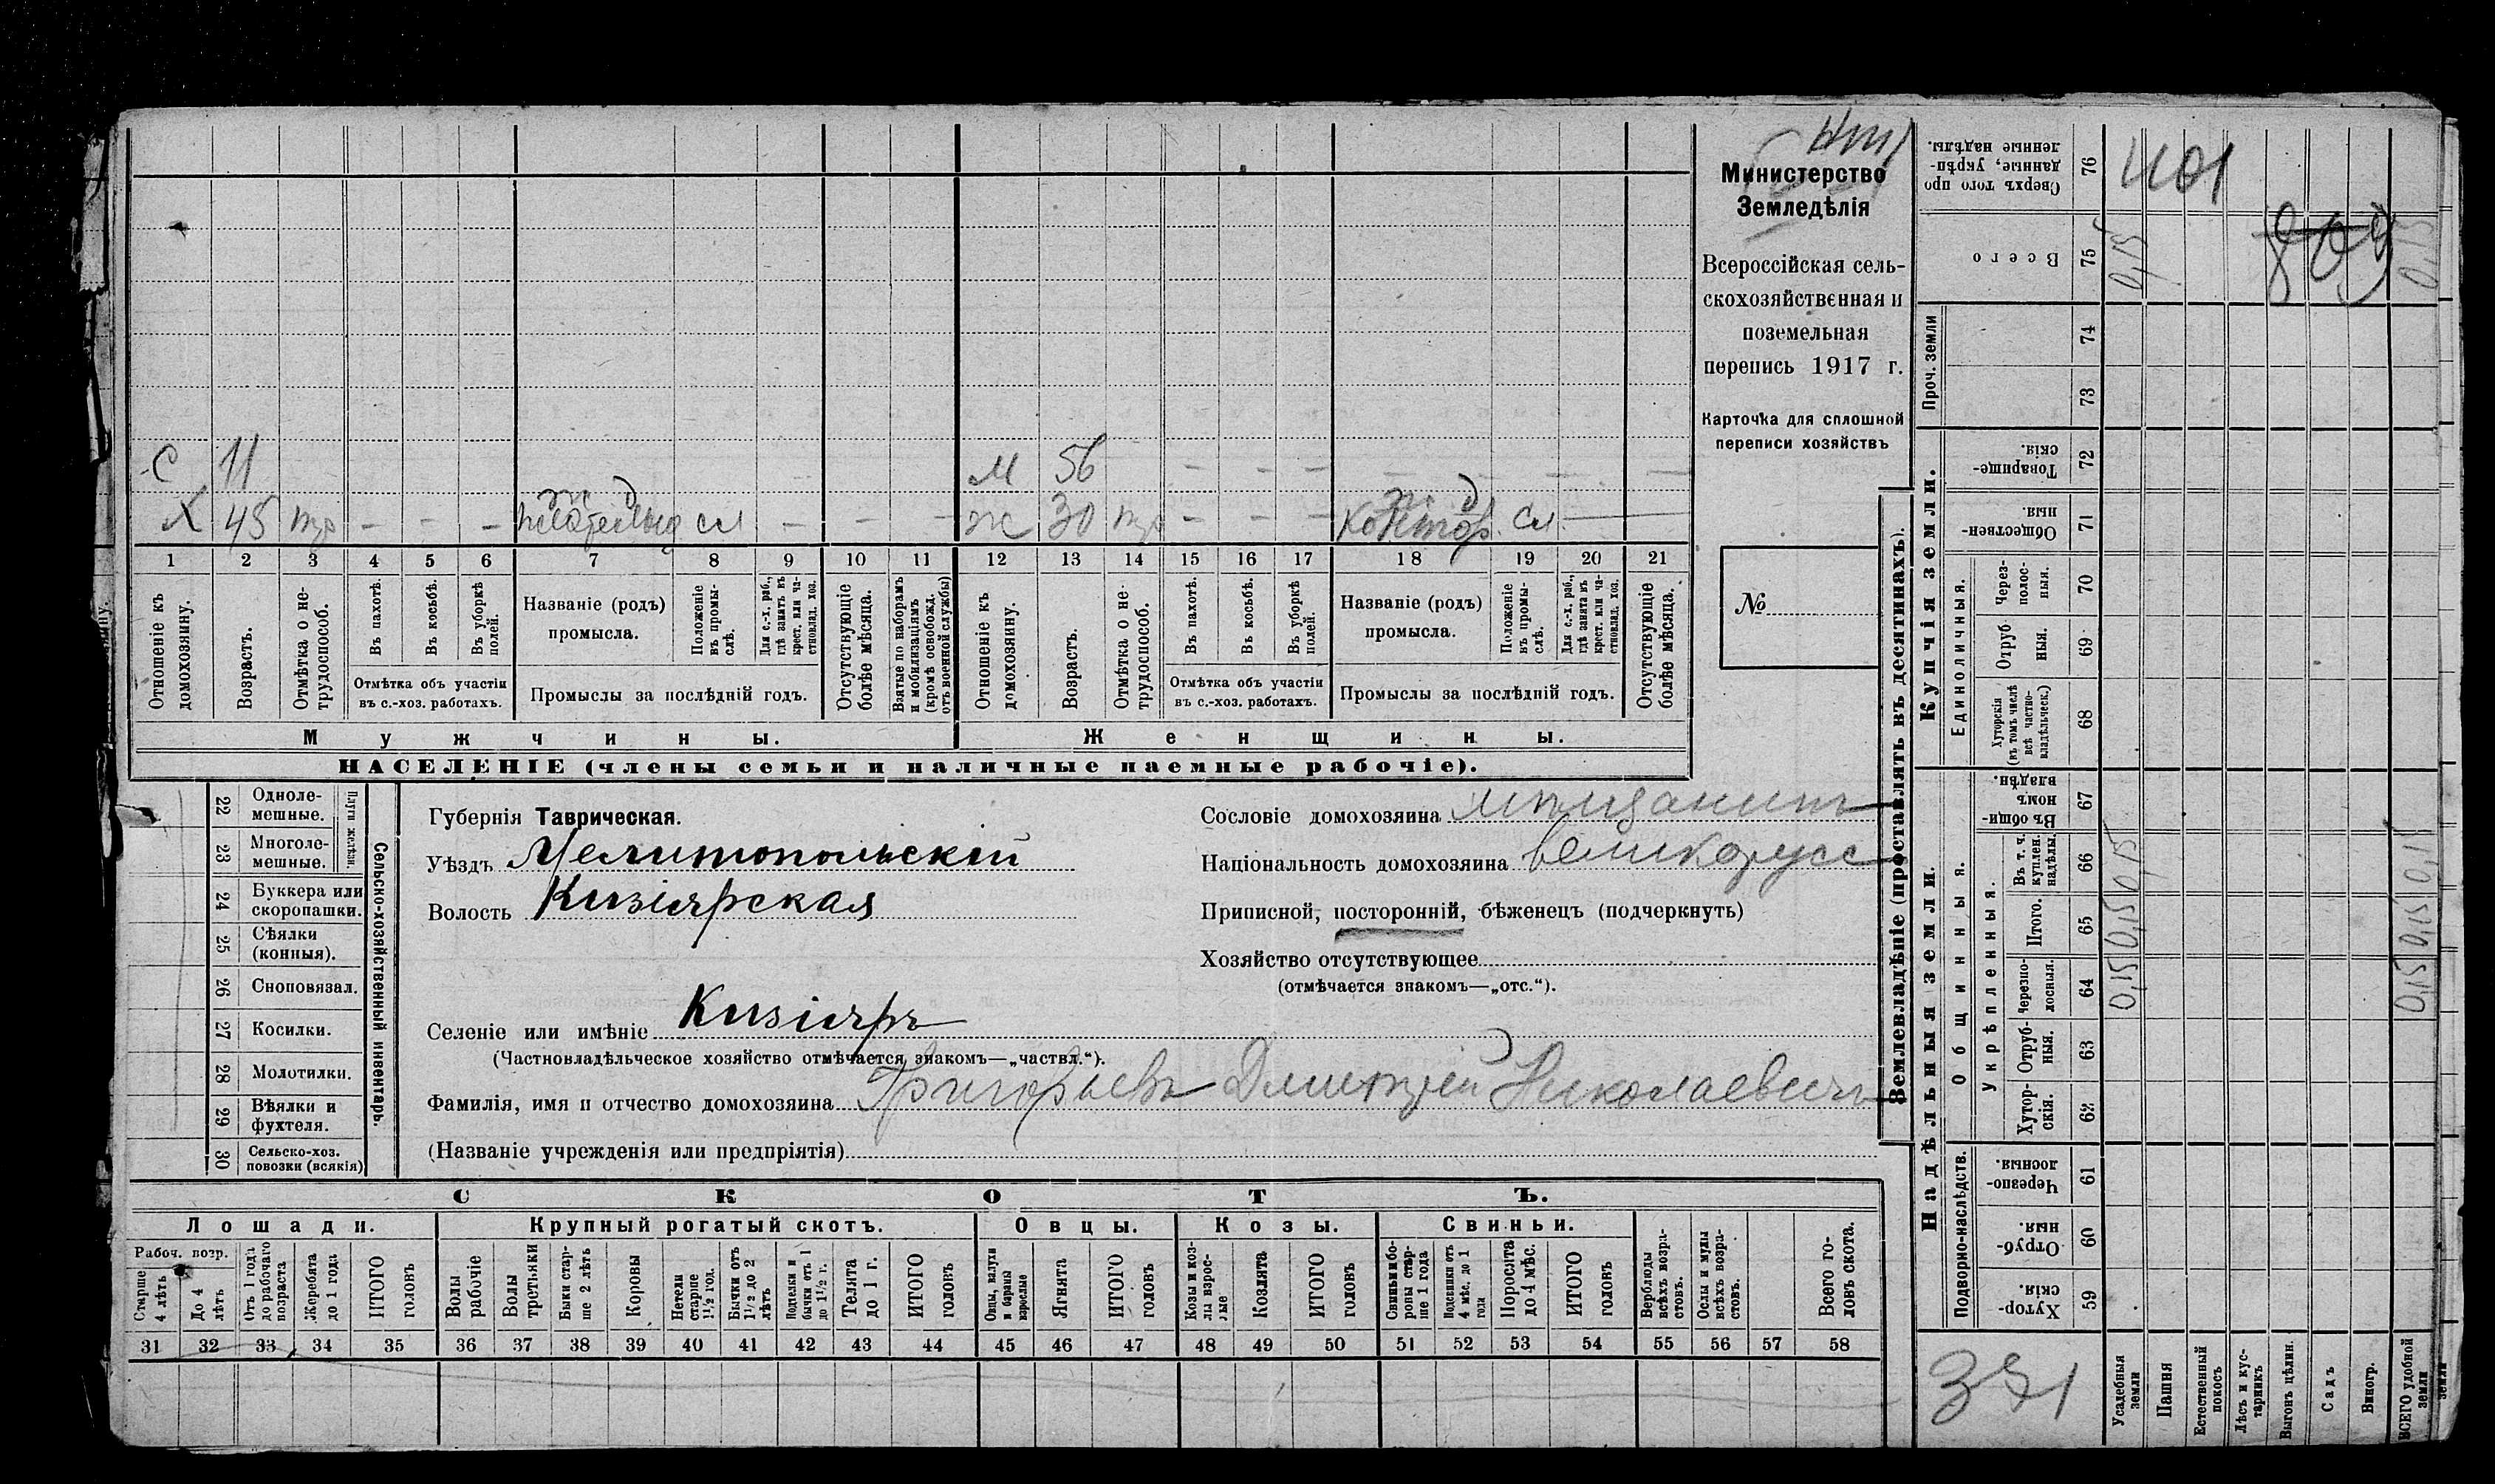 Министерство
Земледѣлія
Всероссійская сель-
скохозяйственная и
поземельная
перепись 1917 г.
Карточка для сплошной
переписи хозяйствъ
№
С 11
М 56 — — — — — — —
Х 45 тр — — — сл — — —
ж 30 тр — — — контор. сл
ж д
ж д
1 2 3 4 5 6 7 8 9 10 11 12 13 14 15 16 17 18 19 20 21
Отношеніе къ домохозяину.
Возрастъ.
Отмѣтка о не-трудоспособ.
Въ пахотѣ.
Въ косьбѣ.
Въ уборкѣ полей.
Отмѣтка объ участіи
въ с.-хоз. работахъ.
Названіе (родъ)
промысла.
Положеніе въ промы-слѣ.
Для с.-х. раб., гдѣ занятъ въ крест. или ча-стновлад. хоз.
Промыслы за послѣдній годъ.
Отсутствующіе болѣе мѣсяца.
Взятые по наборамъ и мобилизаціямъ (кромѣ освобожд. отъ военной службы)
Отношеніе къ домохозяину.
Возрастъ.
Отмѣтка о не-трудоспособ.
Въ пахотѣ.
Въ косьбѣ.
Въ уборкѣ полей.
Отмѣтка объ участіи
въ с.-хоз. работахъ.
Названіе (родъ)
промысла.
Положеніе въ промы-слѣ.
Для с.-х. раб., гдѣ занята въ крест. или ча-стновлад. хоз.
Промыслы за послѣдній годъ.
Отсутствующіе болѣе мѣсяца.
Мужчины.
Женщины.
НАСЕЛЕНІЕ (члены семьи и наличные наемные рабочіе).
22 Одноле-
мешные.
23 Многоле-
мешные.
Плуги желѣзн.
24 Буккера или
скоропашки.
25 Сѣялки
(конныя).
26 Сноповязал.
27 Косилки.
28 Молотилки.
29 Вѣялки и
фухтеля.
30 Сельско-хоз.
повозки (всякія)
Сельско-хозяйственный инвентарь.
Губернія Таврическая.
Уѣздъ Мелитопольскій
Волость Кизіярская
Селеніе или имѣніе Кизіяръ
(Частновладѣльческое хозяйство отмѣчается знакомъ—„частвл.“).
Фамилія, имя и отчество домохозяина Григорьевъ Дмитрій Николаевичъ
(Названіе учрежденія или предпріятія)
Сословіе домохозяина мѣщанинъ
Національность домохозяина великорусс
Приписной, посторонній, бѣженецъ (подчеркнуть)
Хозяйство отсутствующее
(отмѣчается знакомъ—„отс.“).
СКОТЪ.
Лошади.
Крупный рогатый скотъ.
Овцы.
Козы.
Свиньи.
Рабоч. возр.
Старше 4 лѣтъ
До 4 лѣтъ
Отъ 1 года до рабочаго возраста
Жеребята до 1 года
ИТОГО головъ
Волы рабочіе
Волы третьяки
Быки стар-ше 2 лѣтъ
Коровы
Нетели старше 1½ год.
Бычки отъ 1½ до 2 лѣтъ
Подтелки и бычки отъ 1 до 1½ г.
Телята до 1 г.
ИТОГО головъ
Овцы, валухи и бараны взрослые
Ягнята
ИТОГО головъ
Козы и коз-лы взрос-лые
Козлята
ИТОГО головъ
Свиньи и бо-ровы стар-ше 1 года
Подсвинки отъ 4 мѣс. до 1 года
Поросята до 4 мѣс.
ИТОГО головъ
Верблюды всѣхъ возра-стовъ.
Ослы и мулы всѣхъ возра-стовъ.
Всего го-ловъ скота.
31 32 33 34 35 36 37 38 39 40 41 42 43 44 45 46 47 48 49 50 51 52 53 54 55 56 57 58
Землевладѣніе (проставлять въ десятинахъ).
Надѣльныя земли.
Купчія земли.
Проч. земли
Сверхъ того про-данные, укрѣп-ленные надѣлы. 76
401
Всего 75 0,15
809
0,15
74
73
Товарище-скія. 72
Обществен-ныя. 71
Единоличныя.
Через-полос-ныя. 70
Отруб-ныя. 69
Хуторскія (въ томъ числѣ всѣ частно-владѣльческ.) 68
Общинныя.
Въ общи-номъ владѣн. 67
Укрѣпленныя.
Въ т. ч. куплен. надѣлы. 66 0,15 0,15
Итого. 65 0,15 0,15
Черезпо-лосныя. 64 0,15 0,15
Отруб-ныя. 63
Хутор-скія. 62
Подворно-наслѣдств.
Черезпо-лосныя. 61
Отруб-ныя. 60
Хутор-скія. 59
Усадебныя земли
Пашня
Естественный покосъ
Лѣсъ и кус-тарникъ
Выгонъ цѣлин.
Садъ
Виногр.
ВСЕГО удобной земли